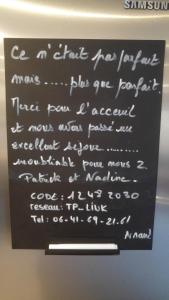 SAMSUNG
Ce n'était pas parfait
mais..... plus que parfait.
Merci pour l'acceuil
et nous avons passé un
excellent sejour.........
inoubliable pour nous 2.
Patrick et Nadine.
CODE: 12482030
reseau: TP_LINK
Tel: 06-41-69-21.61